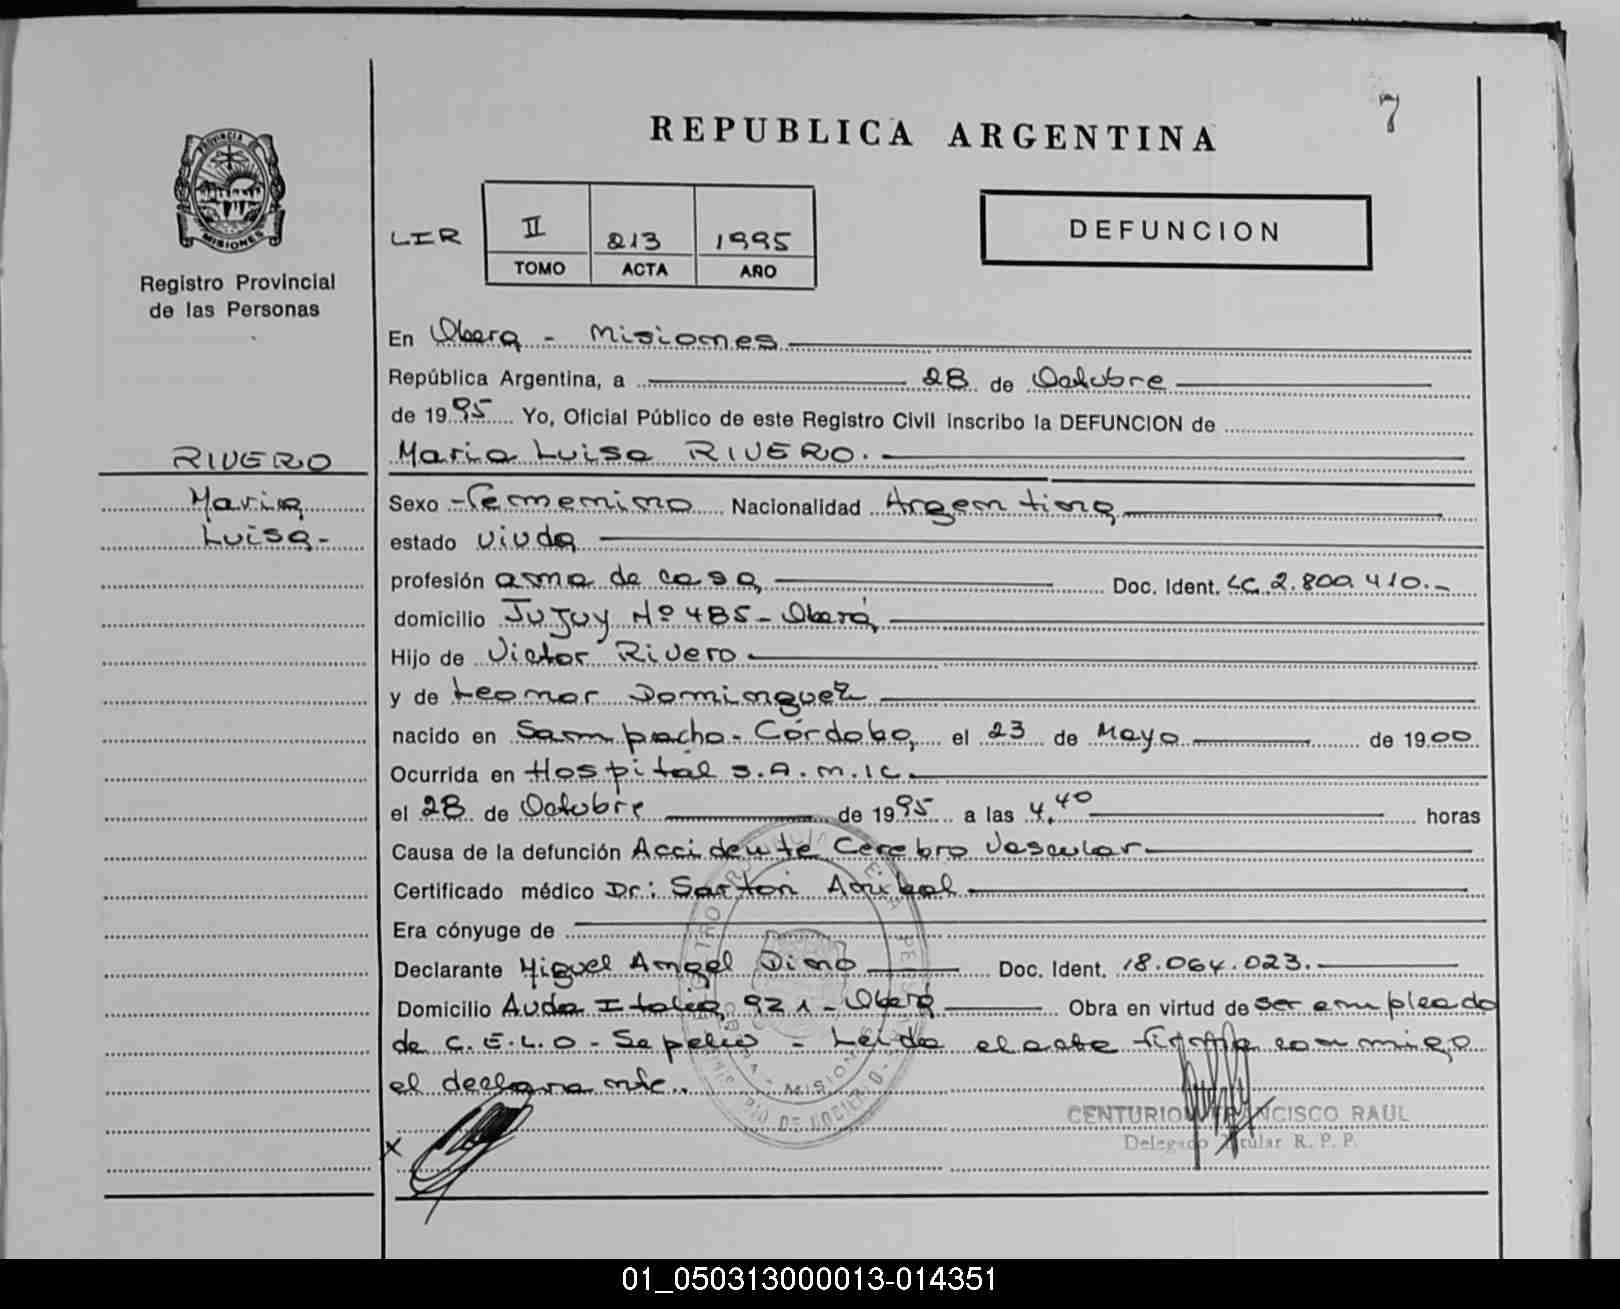 7
REPUBLICA ARGENTINA
PROVINCIA DE
MISIONES
Registro Provincial
de las Personas
LIR
II 213 1995
TOMO ACTA AÑO
DEFUNCION
En Obera - Misiones
República Argentina, a 28 de Octubre
de 1995 Yo, Oficial Público de este Registro Civil inscribo la DEFUNCION de
RIVERO
Maria Luisa RIVERO.
Maria
Luisa-
Sexo -femenino Nacionalidad Argentina
estado viuda
profesión ama de casa Doc. Ident. LC. 2.800.410.-
domicilio Jujuy Nº 485 - Oberá
Hijo de Victor Rivero
y de Leonor Dominguez
nacido en Sampacho - Córdoba, el 23 de Mayo de 1900
Ocurrida en Hospital S.A.M.IC.
el 28 de Octubre de 1995 a las 4,40 horas
Causa de la defunción Accidente Cerebro Vascular
Certificado médico Dr: Sartori Anibal
Era cónyuge de
Declarante Miguel Angel Dino Doc. Ident. 18.064.023.
Domicilio Avda Italia 921 - Oberá Obra en virtud de ser empleado
de C.E.L.O - Sepelio - Leída el acta firma conmigo
el declarante.
CENTURION FRANCISCO RAUL
Delegado Titular R. P. P.
X
01_050313000013-014351